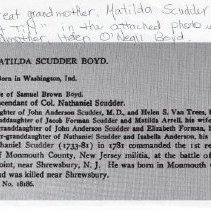 eat grandmother, Matilda Scudder
in the attached photo
O'Neall Boyd
MATILDA SCUDDER BOYD.
Born in Washington, Ind.
of Samuel Brown Boyd.
scendant of Col. Nathaniel Scudder.
ghter of John Anderson Scudder, M. D., and Helen S. Van Trees, h
nddaughter of Jacob Forman Scudder and Matilda Arrell, his wife
granddaughter of John Anderson Scudder and Elizabeth Forman, h
granddaughter of Nathaniel Scudder and Isabella Anderson, his
Scudder (1733-81) in 1781 commanded the 1st re
Monmouth County, New Jersey militia, at the battle of
Point, near Shrewsbury, N. J. He was born in Monmouth
and was killed near Shrewsbury.
No. 18186.